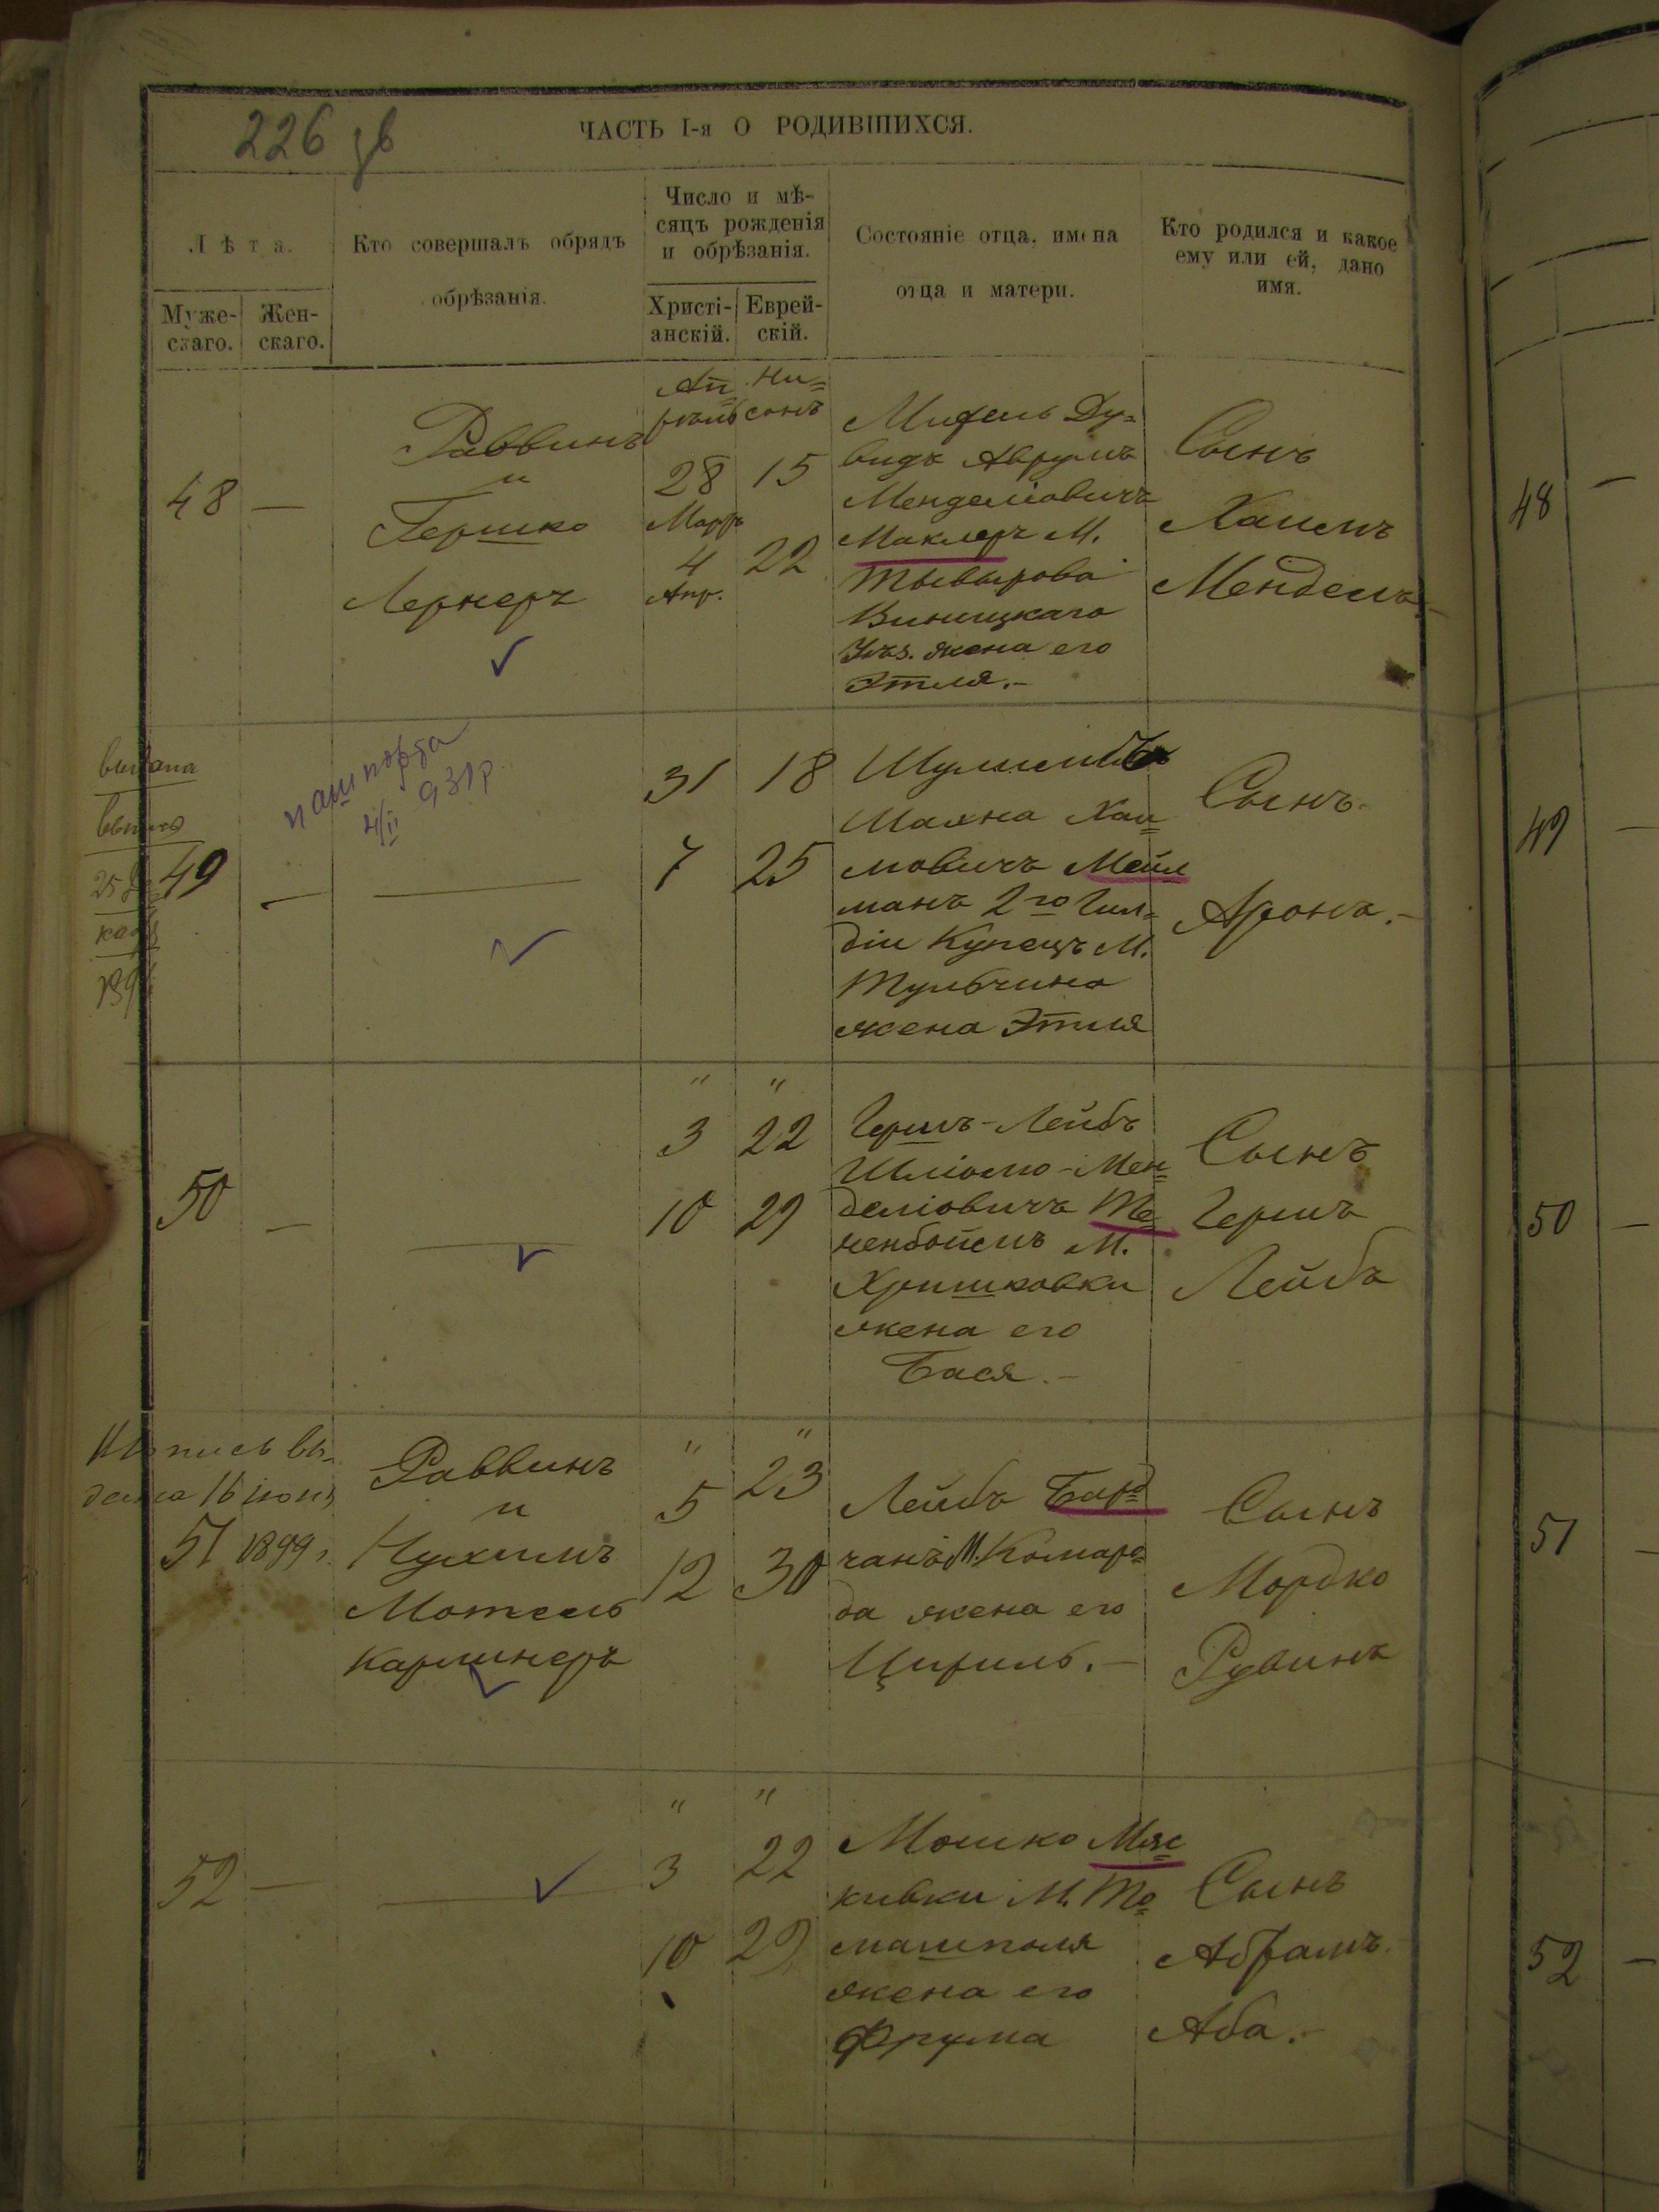 226 зв
ЧАСТЬ I-я О РОДИВШИХСЯ.
Лѣта.
Муже-
скаго.
Жен-
скаго.
Кто совершалъ обрядъ
обрѣзанія.
Число и мѣ-
сяцъ рожденія
и обрѣзанія.
Христі-
анскій.
Еврей-
скій.
Состояніе отца, имена
отца и матери.
Кто родился и какое
ему или ей, дано
имя.
48 —
Раввинъ
и
Гершко
Лернеръ
Ап=
рѣль
28
Мартъ
4
Апр.
Ни=
санъ
15
22
Ду=
видъ Аврумъ
Менделіовичъ
Маклеръ М.
Тывырова
Виницкаго
Уѣз. жена его
Этля.—
Сынъ
Хаимъ
Мендель—
49 —
пашпорта
4/II 931р.
31 18
7 25
Маяна Хаи=
мовичъ Мейл
манъ 2го Гил=
діи Купецъ М.
Тульчина
жена Этля
Сынъ.
Аронъ.—
50 —
" "
3 22
10 29
Гершъ-Лейбъ
Шліомо-Мен=
деліовичъ Те=
ненбоймъ М.
Хришковки
жена его
Бася.—
Сынъ
Гершъ
Лейбъ
дана 16 іюня
51 1899 г.
Раввинъ
и
Нухимъ
Мотель
Каршнеръ
" "
5 23
12 30
Лейбъ Бар=
чанъ М. Комаро=
да жена его
Цириль.—
Сынъ
Мордко
Рувинъ
52 —
" "
3 22
10 29
Мошко Мяс=
кивки М. То=
машполя
жена его
Фрума
Сынъ
Абрамъ
Аба.—
48 —
49 —
50 —
51
52 —